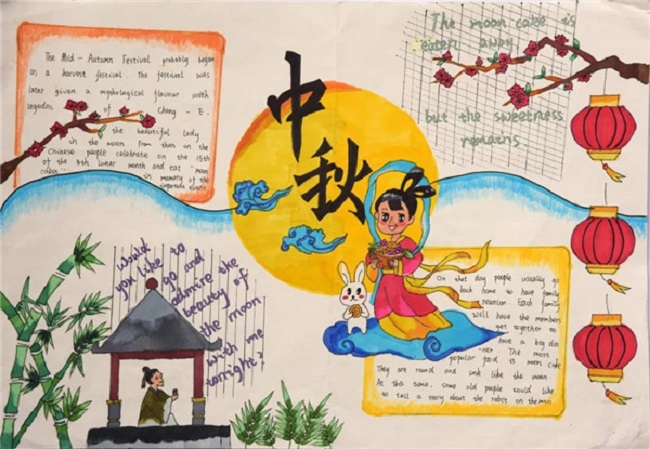 The Mid-Autumn Festival probably began
as a harvest festival. The festival was
later given a mythological flavour with
legends of Chang-E,
the beautiful lady
in the moon. From then on the
Chinese people celebrate on the 15th
of the 8th lunar month and eat moon
cakes in memory of the
中秋
The moon cake is
eaten away
but the sweetness
remains
Would
you like to
go and
admire the
beauty of
the moon
with me
tonight?
On that day people usually go
back home to have family
reunion. Each family
will have the members
get together to
have a big din
ner. The most
popular food is moon cake
They are round and look like the moon
At this time, some old people would like
to tell a story about the rabbit on the moon